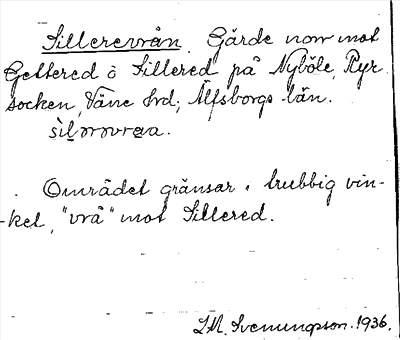 Sillerevrån. Gärde norr mot
Gettered o Sillered på Nyböle, Ryr
socken, Väne hrd; Älfsborgs län.
Området gränsar i trubbig vin-
-kel, "vrå" mot Sillered.
I.M. Svenungsson. 1936.